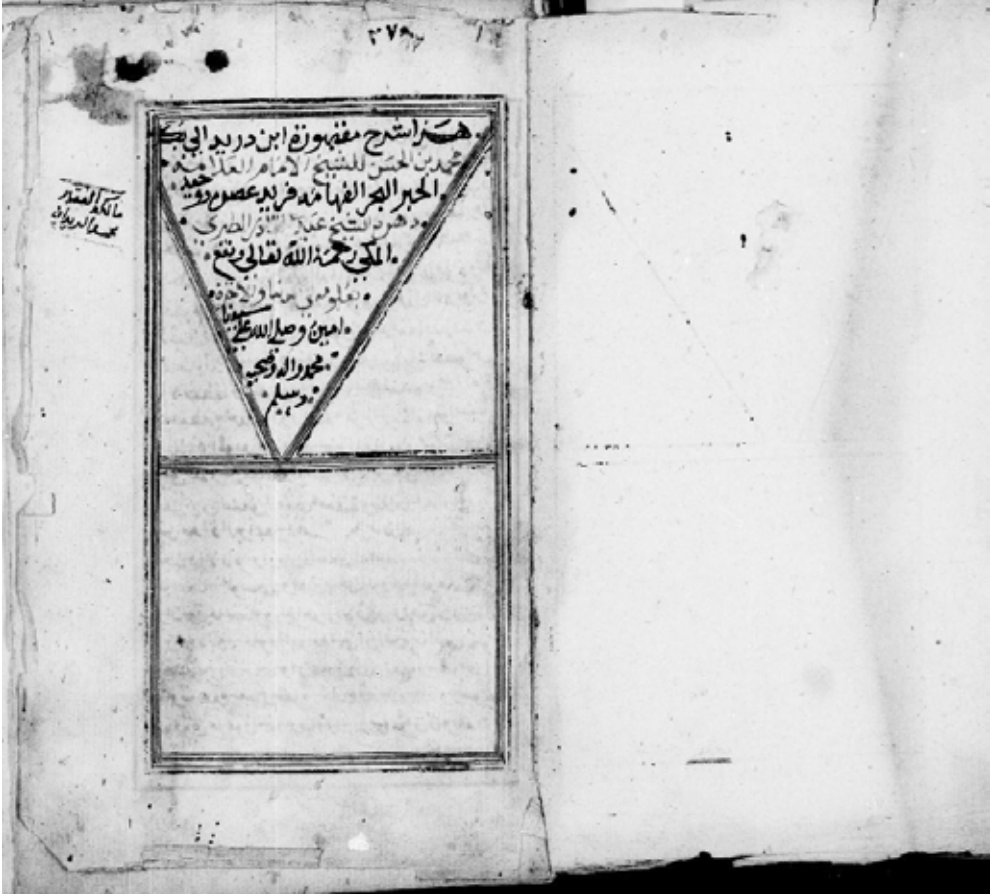 هذا شرح مقصورة ابن دريد ابي بكر
محمد بن الحسن للشيخ الامام العلامة
الحبر البحر الفهامه فريد عصره ووحيد
دهره الشيخ عبد القادر الطبري
المكي رحمة الله تعالى ونفع
بعلومه في الدنيا والاخرة
امين وصلى الله على سيدنا
محمد واله وصحبه
وسلم
مالكه الفقير